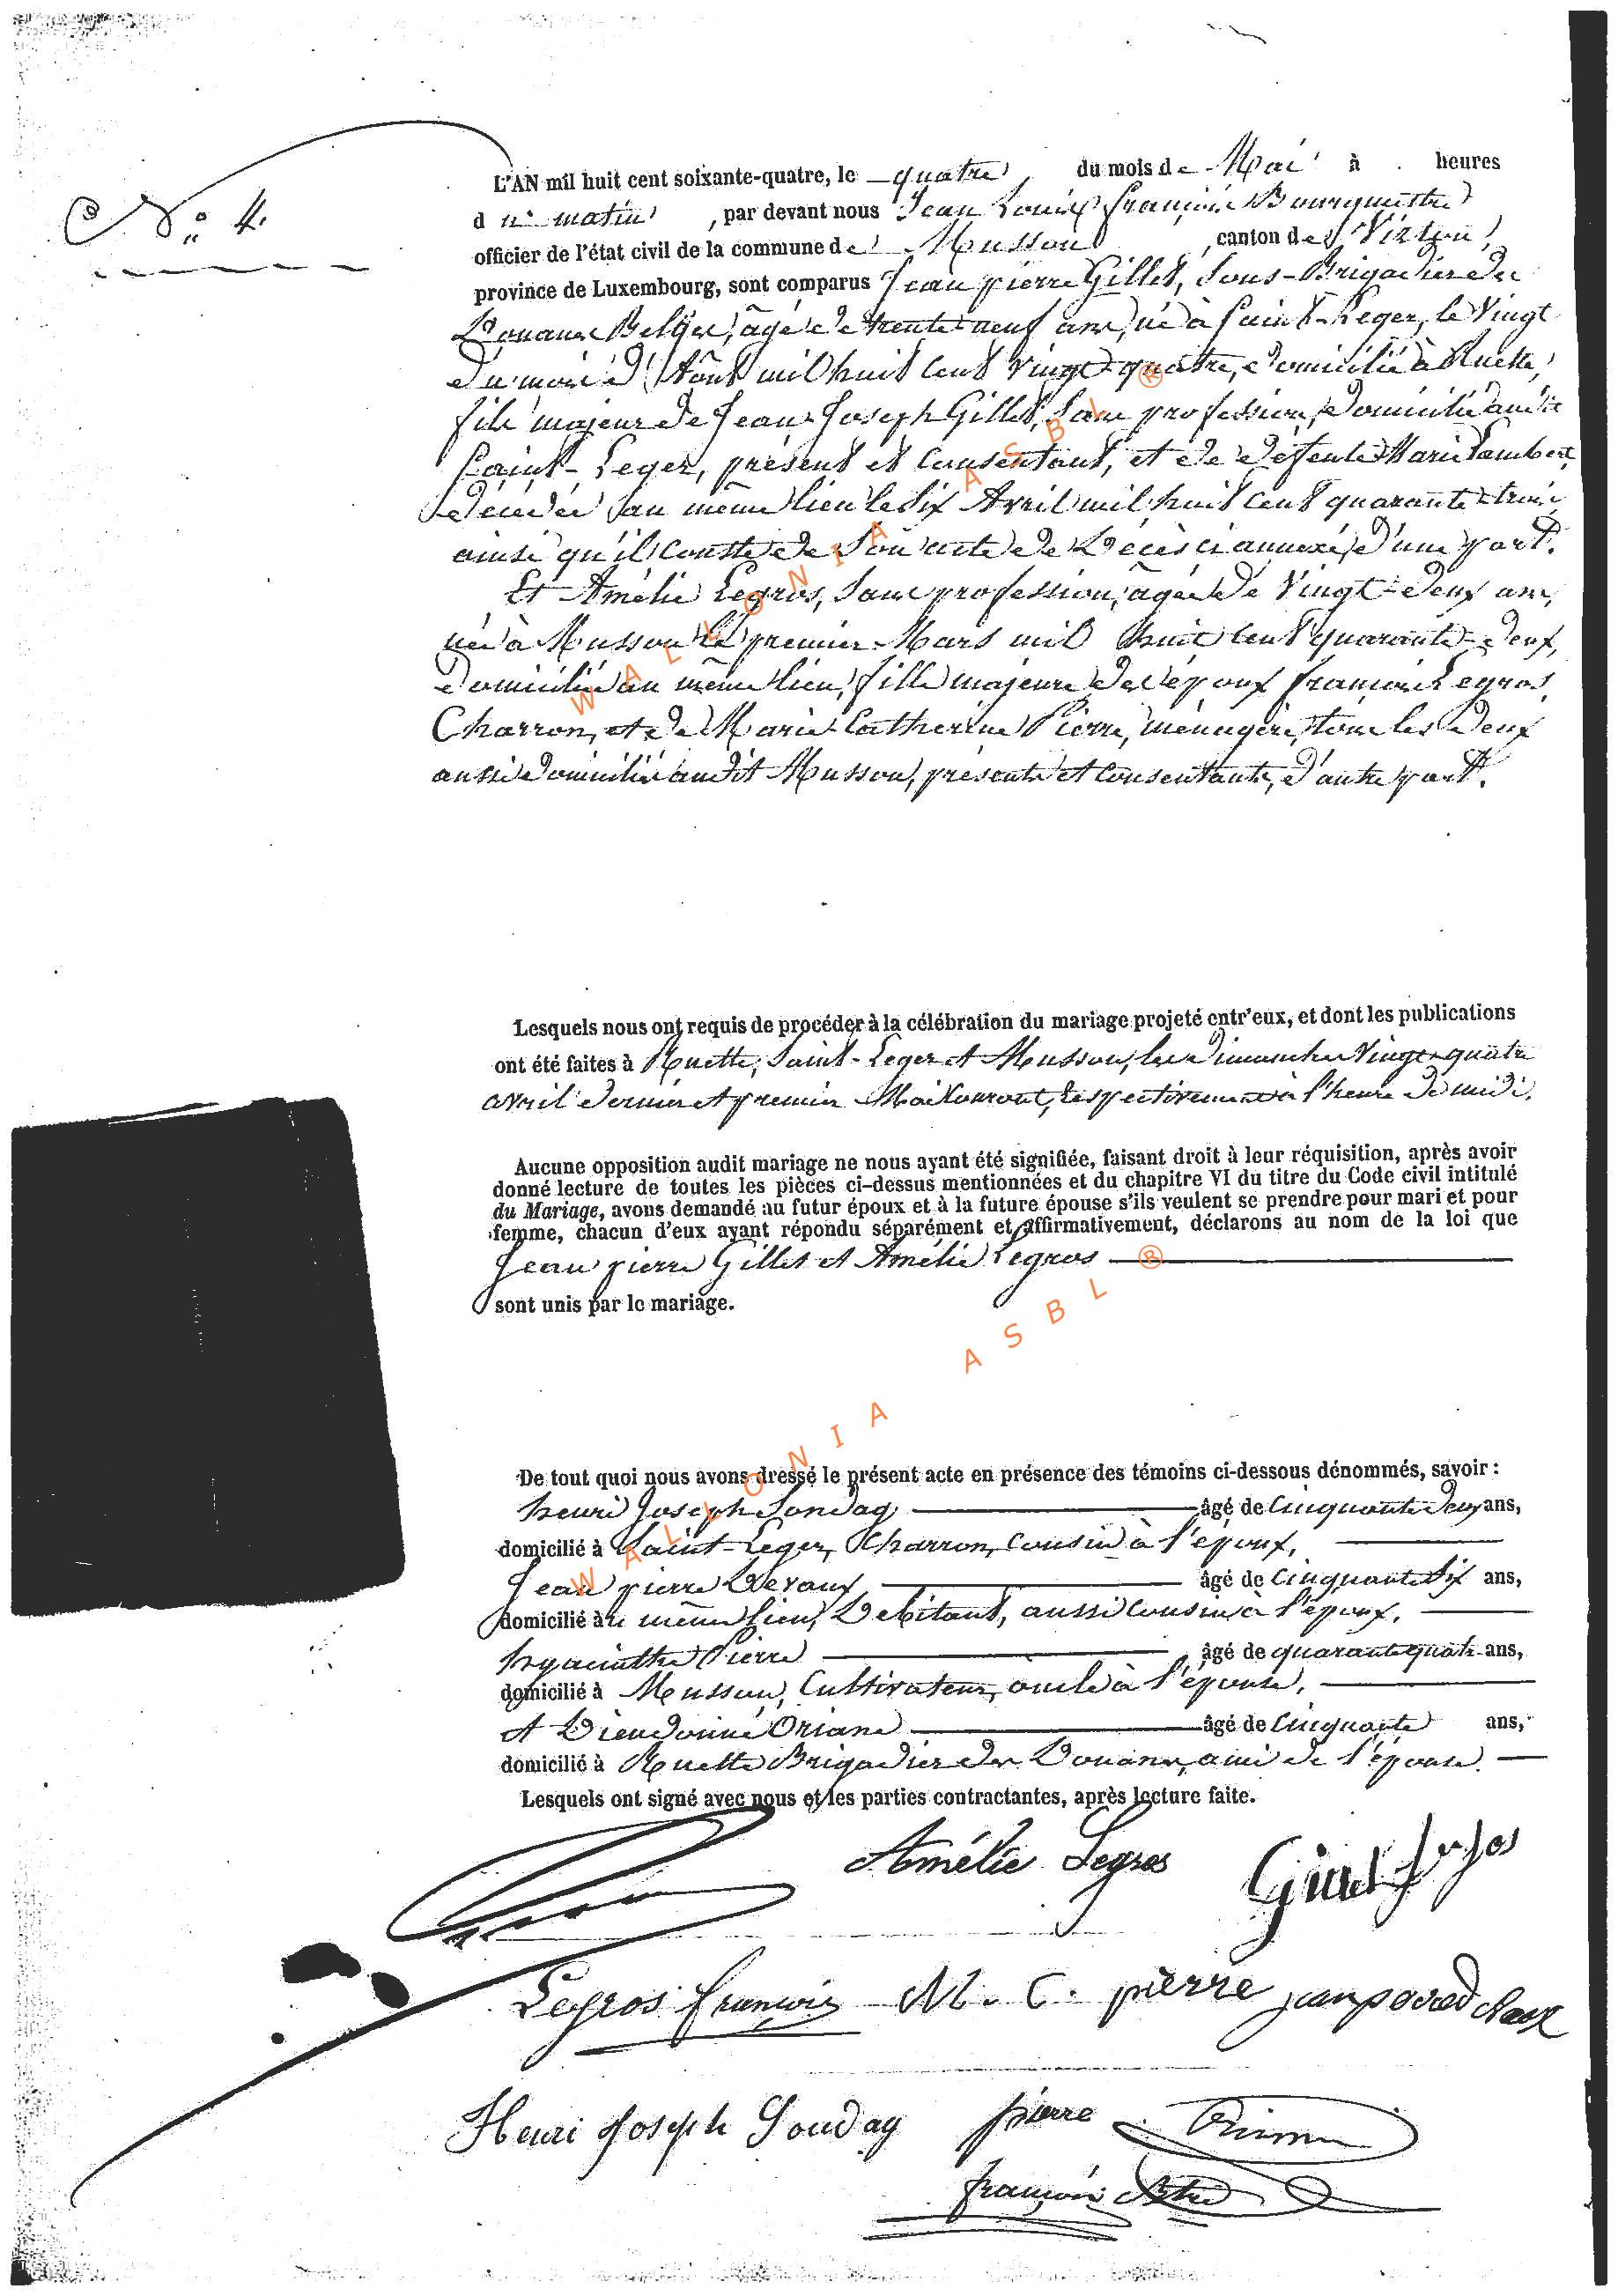 N° 4.
L'AN mil huit cent soixante-quatre, le quatre du mois de Mai à heures
du matin, par devant nous Jean Louis François Bourgmestre
officier de l'état civil de la commune de Musson, canton de Virton,
province de Luxembourg, sont comparus Jean pierre Gillet, Sous-Brigadier de
Douanes Belges, âgé de trente-neuf ans, né à Saint-Leger, le Vingt
du mois d'Août mil huit cent Vingt-quatre, domicilié à Ruette,
fils majeur de Jean-Joseph Gillet, Sans profession, domicilié audit
Saint-Leger, présent et Consentant, et de défunte Marie Lambert,
décédée au même lieu le Six Avril mil huit cent quarante-trois,
ainsi qu'il Conste de Son acte de Décès ci annexé, d'une part.
Et Amélie Legros, Sans profession, âgée de Vingt-deux ans,
née à Musson le premier Mars mil huit cent quarante-deux,
domiciliée au même lieu, fille majeure des époux françois Legros,
Charron, et de Marie-Catherine Pierre, ménagère, tous les deux
aussi domiciliés audit Musson, présents et Consentants, d'autre part.
Lesquels nous ont requis de procéder à la célébration du mariage projeté entr'eux, et dont les publications
ont été faites à Ruette, Saint-Leger et Musson, les Dimanches Vingt-quatre
avril dernier et premier Mai Courant, respectivement à l'heure de midi.
Aucune opposition audit mariage ne nous ayant été signifiée, faisant droit à leur réquisition, après avoir
donné lecture de toutes les pièces ci-dessus mentionnées et du chapitre VI du titre du Code civil intitulé
du Mariage, avons demandé au futur époux et à la future épouse s'ils veulent se prendre pour mari et pour
femme, chacun d'eux ayant répondu séparément et affirmativement, déclarons au nom de la loi que
Jean pierre Gillet et Amélie Legros
sont unis par le mariage.
De tout quoi nous avons dressé le présent acte en présence des témoins ci-dessous dénommés, savoir :
henri Joseph Sonday âgé de Cinquante deux ans,
domicilié à Saint-Leger, Charron, Cousin à l'époux,
Jean pierre Devaux âgé de Cinquante Six ans,
domicilié au même lieu, Débitant, aussi Cousin à l'époux,
hyacinthe Pierre âgé de quarante quatre ans,
domicilié à Musson, Cultivateur, oncle à l'épouse,
et Dieudonné Oriane âgé de Cinquante ans,
domicilié à Ruette Brigadier des Douanes, ami de l'épouse
Lesquels ont signé avec nous et les parties contractantes, après lecture faite.
Amélie Legros
Legros françois M. C. pierre
Henri Joseph Sonday pierre
françois
WALLONIA ASBL ®
WALLONIA ASBL ®